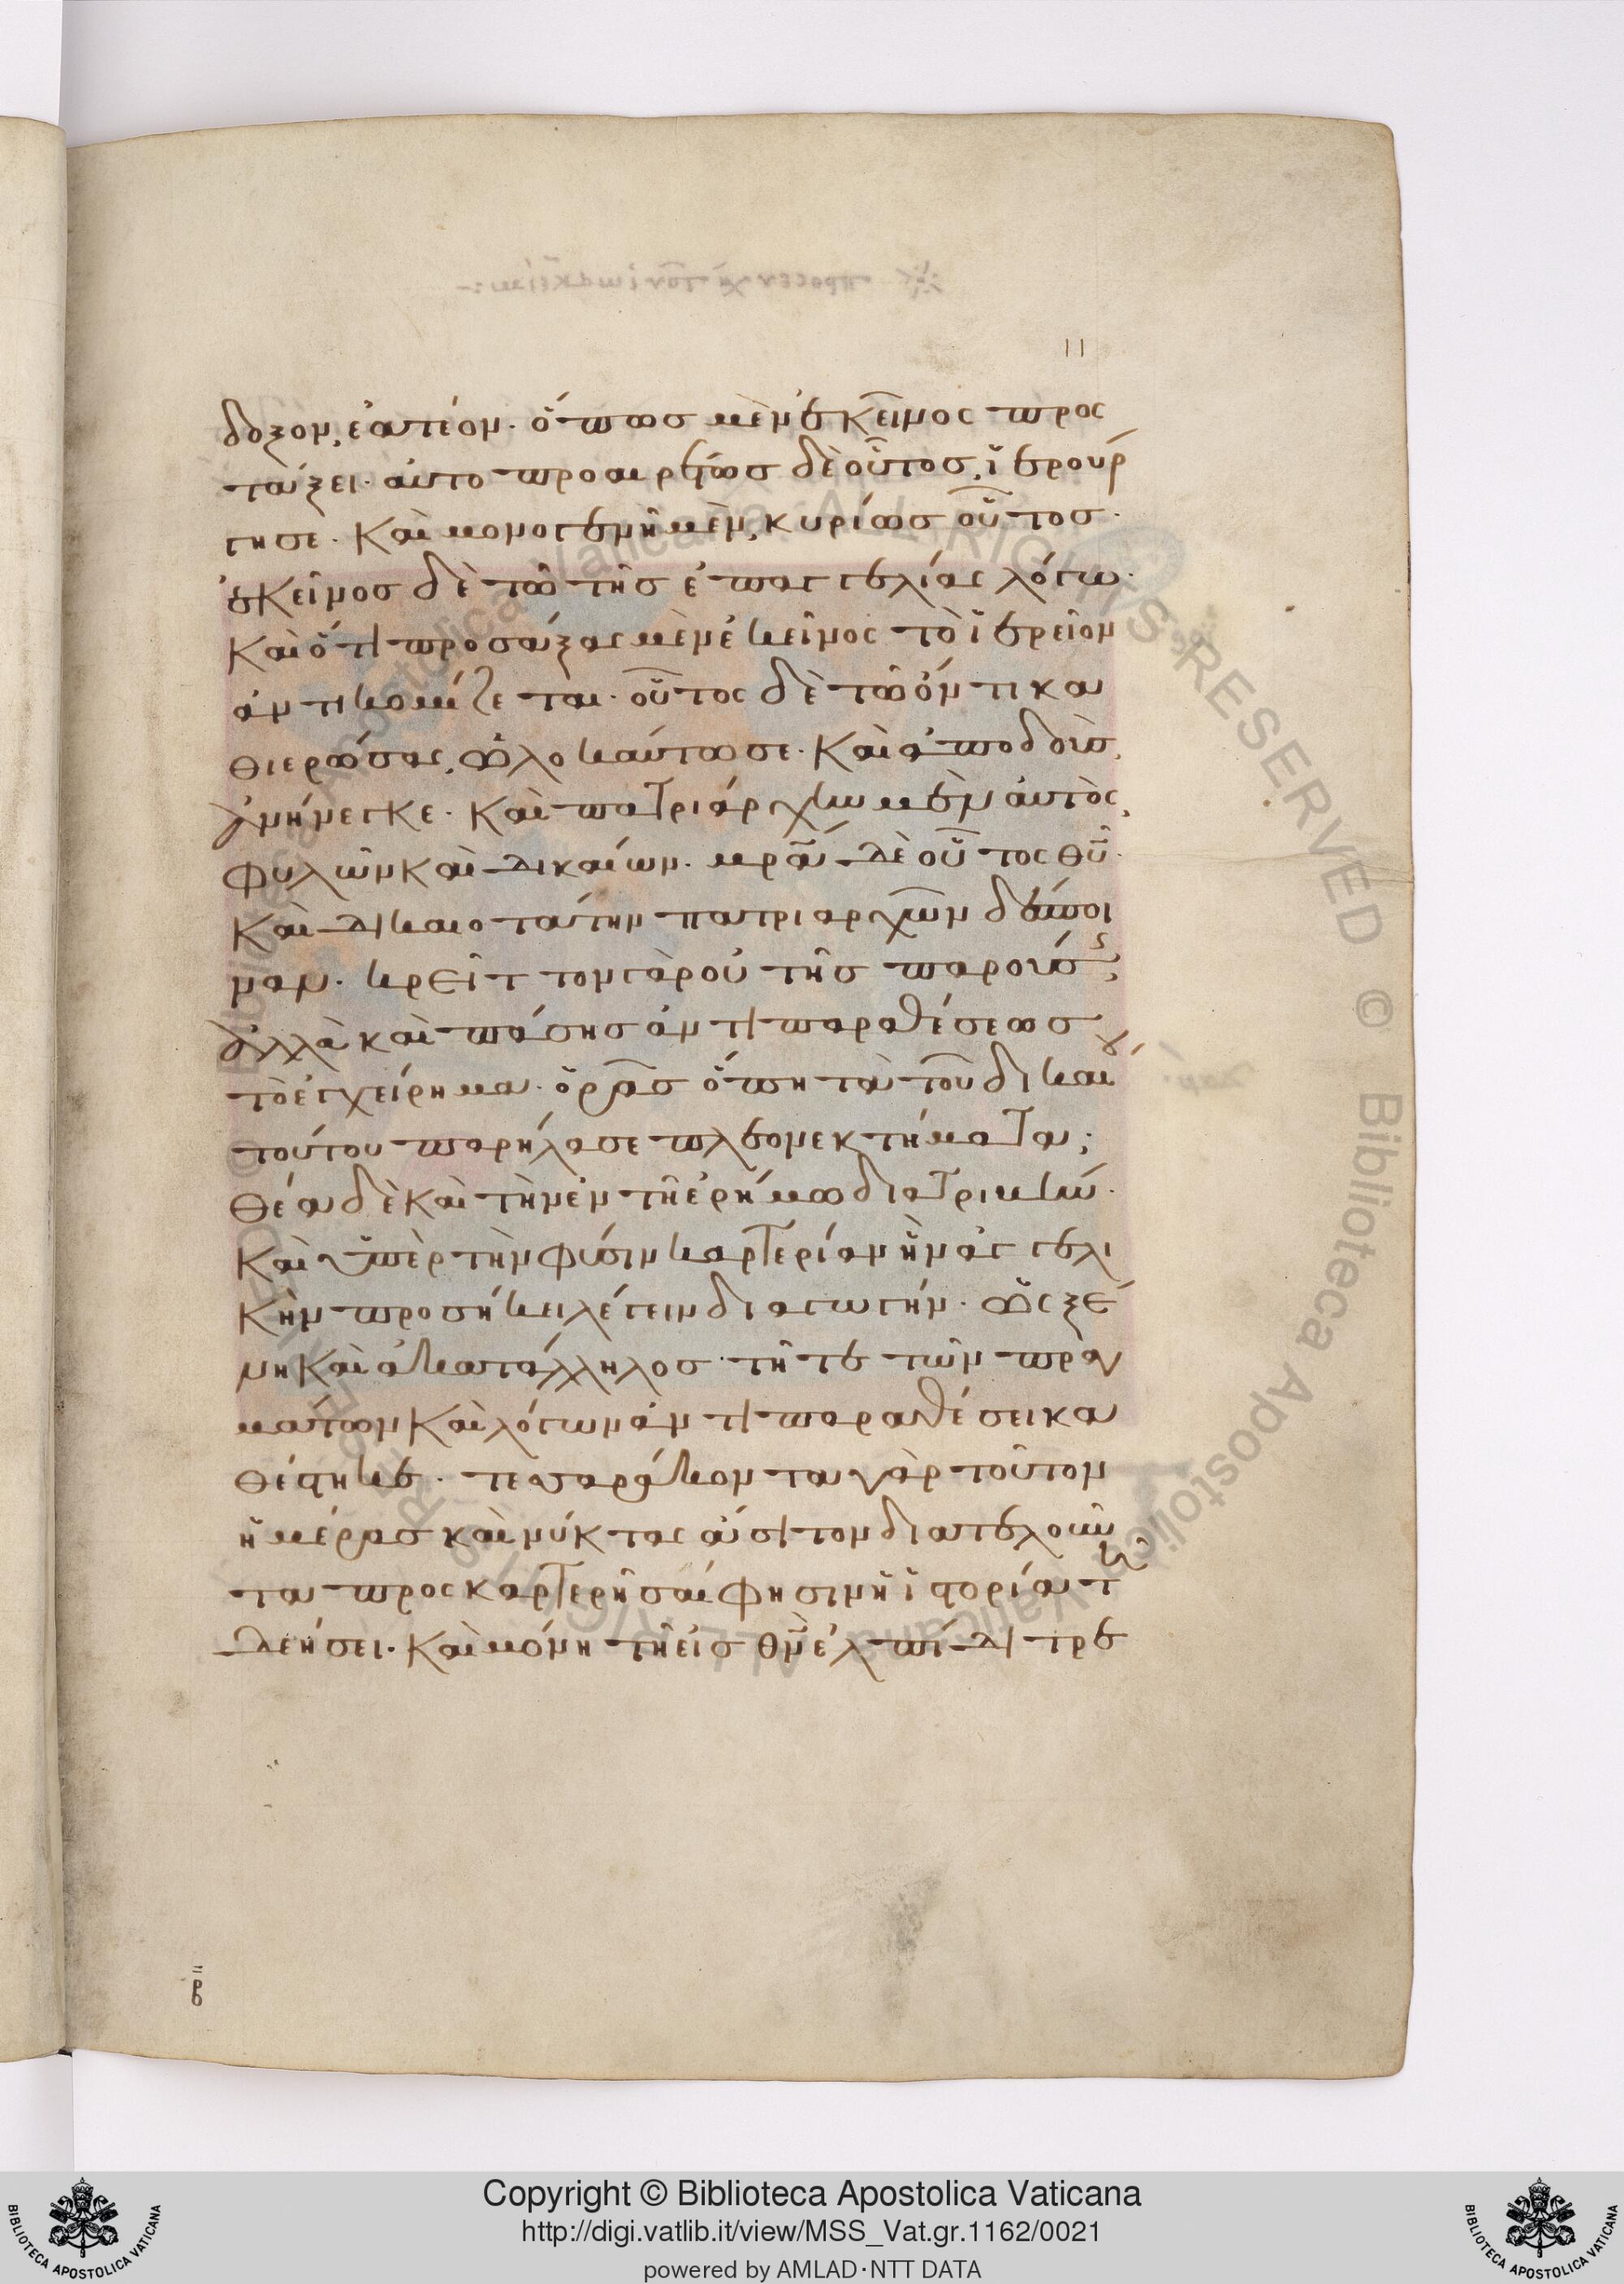 11
δοξον, ἑατέον· ὅπως μὲν ἐκεῖνος προσ
τάξει· αὐτοπροαιρέτως δὲ οὗτος, ἱερούρ
γησε· Καὶ μονογενῆ μὲν, κυρίως οὗτος·
ἐκεῖνος δὲ τῶ τῆς ἐπαγγελίας λόγω·
Καὶ ὅτι προσάξας μὲν ἐκεῖνος τὸ ἱερεῖον
ἀντικομίζεται· οὗτος δὲ τῶ ὄντι κα
θιερώσας, ὡλοκαύτωσε· Καὶ ἀποδοὺς,
ἀνήνεγκε· Καὶ πατριάρχην μὲν αὐτὸς,
φυλῶν καὶ δικαίων· μρα δὲ οὗτος θυ·
Και δικαιοτάτην πατριαρχῶν δέσποι
ναν· κρεῖττον γὰρ οὐ τῆς παρούσης,
ἀλλὰ καὶ πάσης ἀντιπαραθέσεως
τὸ ἐγχείρημα· ὁρᾶς ὅπη τὰ τοῦ δικαί
τούτου παρήλασε πλεονεκτήματα;
Θέα δὲ καὶ τὴν ἐν τῆ ἐρήμω διατριβήν·
Καὶ ὑπὲρ τὴν φύσιν καρτερίαν ἢν ἀγγελι
κὴν προσήκει λέγειν διαγωγήν· ὡς ξέ
νη καὶ ἀκατάλληλος· τῆ γε τῶν πραγ
μάτων καὶ λόγων ἀντιπαραθέσει κα
θέστηκε· τεσσαράκοντα γὰρ τοῦτον
ἡμέρας καὶ νύκτας ἄσιτον διατελοῦν
τα προσκαρτερῆσαί φησιν ἡ ἱστορία τῆ
δεήσει· Καὶ μόνη τῆ εἰς θν ἐλπίδι τρε
β
Copyright © Biblioteca Apostolica Vaticana
http://digi.vatlib.it/view/MSS_Vat.gr.1162/0021
powered by AMLAD·NTT DATA
BIBLIOTECA APOSTOLICA VATICANA
BIBLIOTECA APOSTOLICA VATICANA